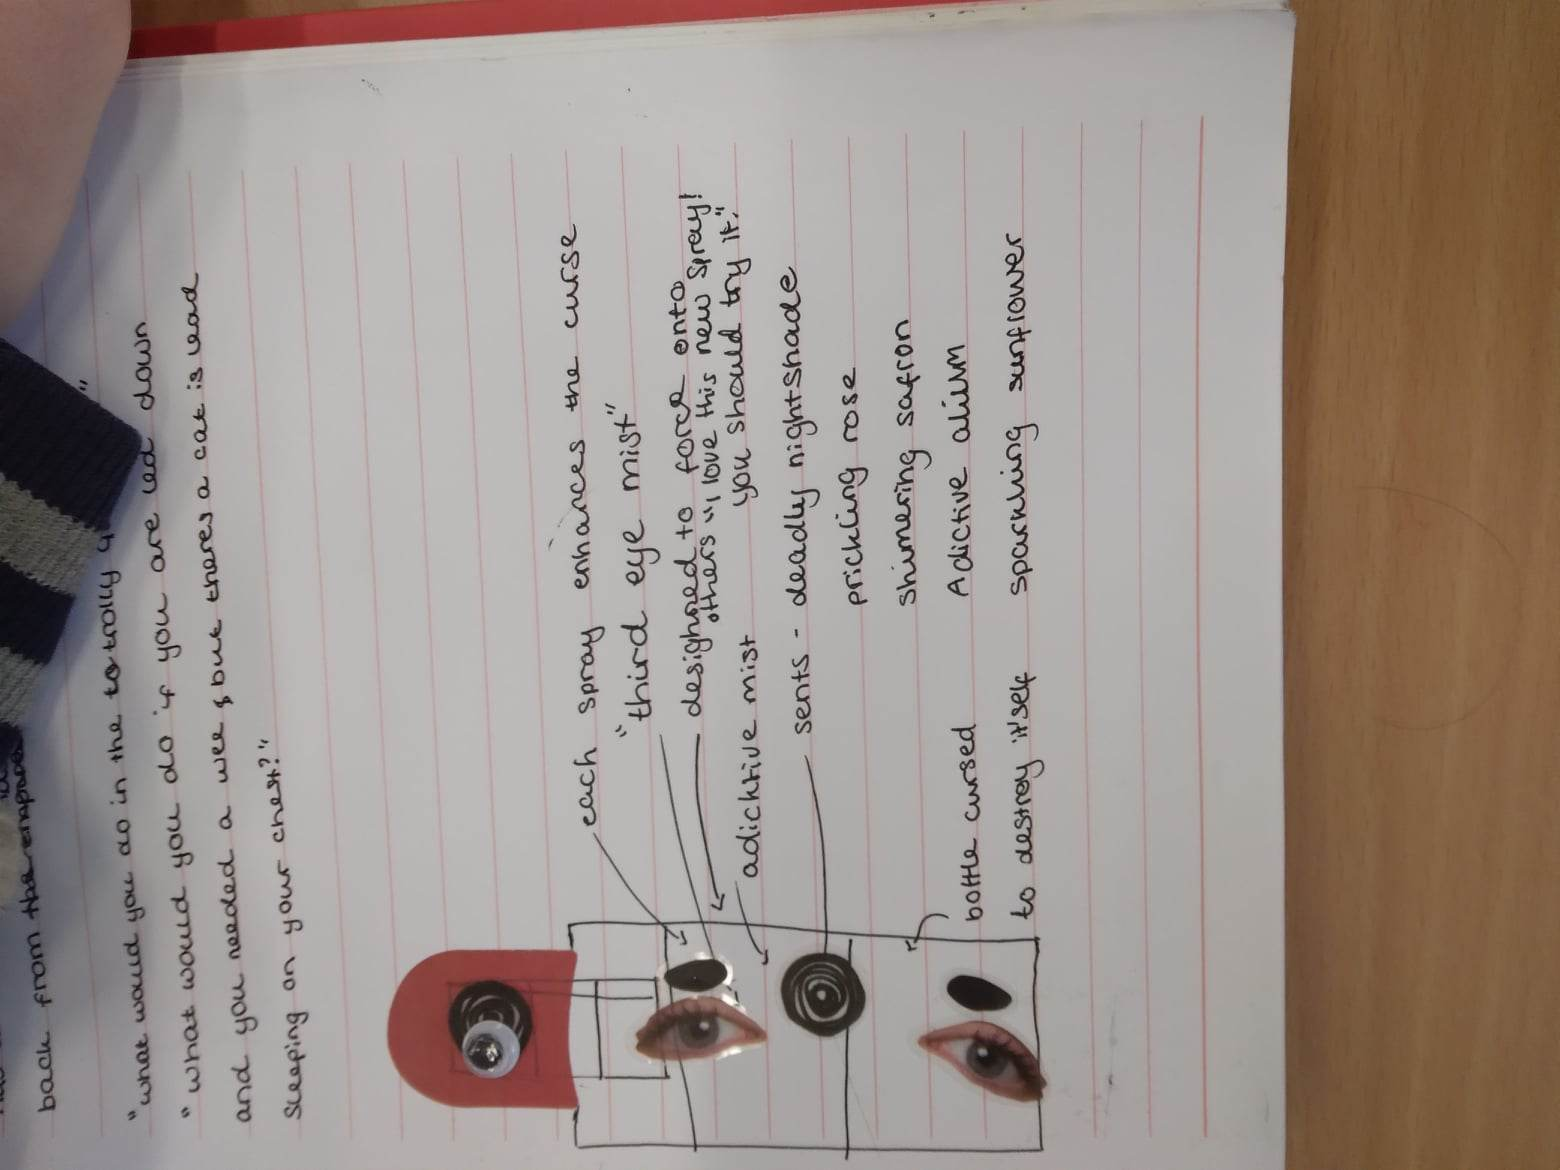 back from the
"what would you do in the to trolly
"what would you do if you are led down
and you needed a wee & but theres a cat is lead
sleeping on your chest?"
each spray enhances the curse
"third eye mist"
desighned to force onto
others "I love this new spray!
you should try it."
adicktive mist
sents - deadly nightshade
prickling rose
shimering safron
Adictive alium
sparkling sunflower
bottle cursed
to destroy it'self